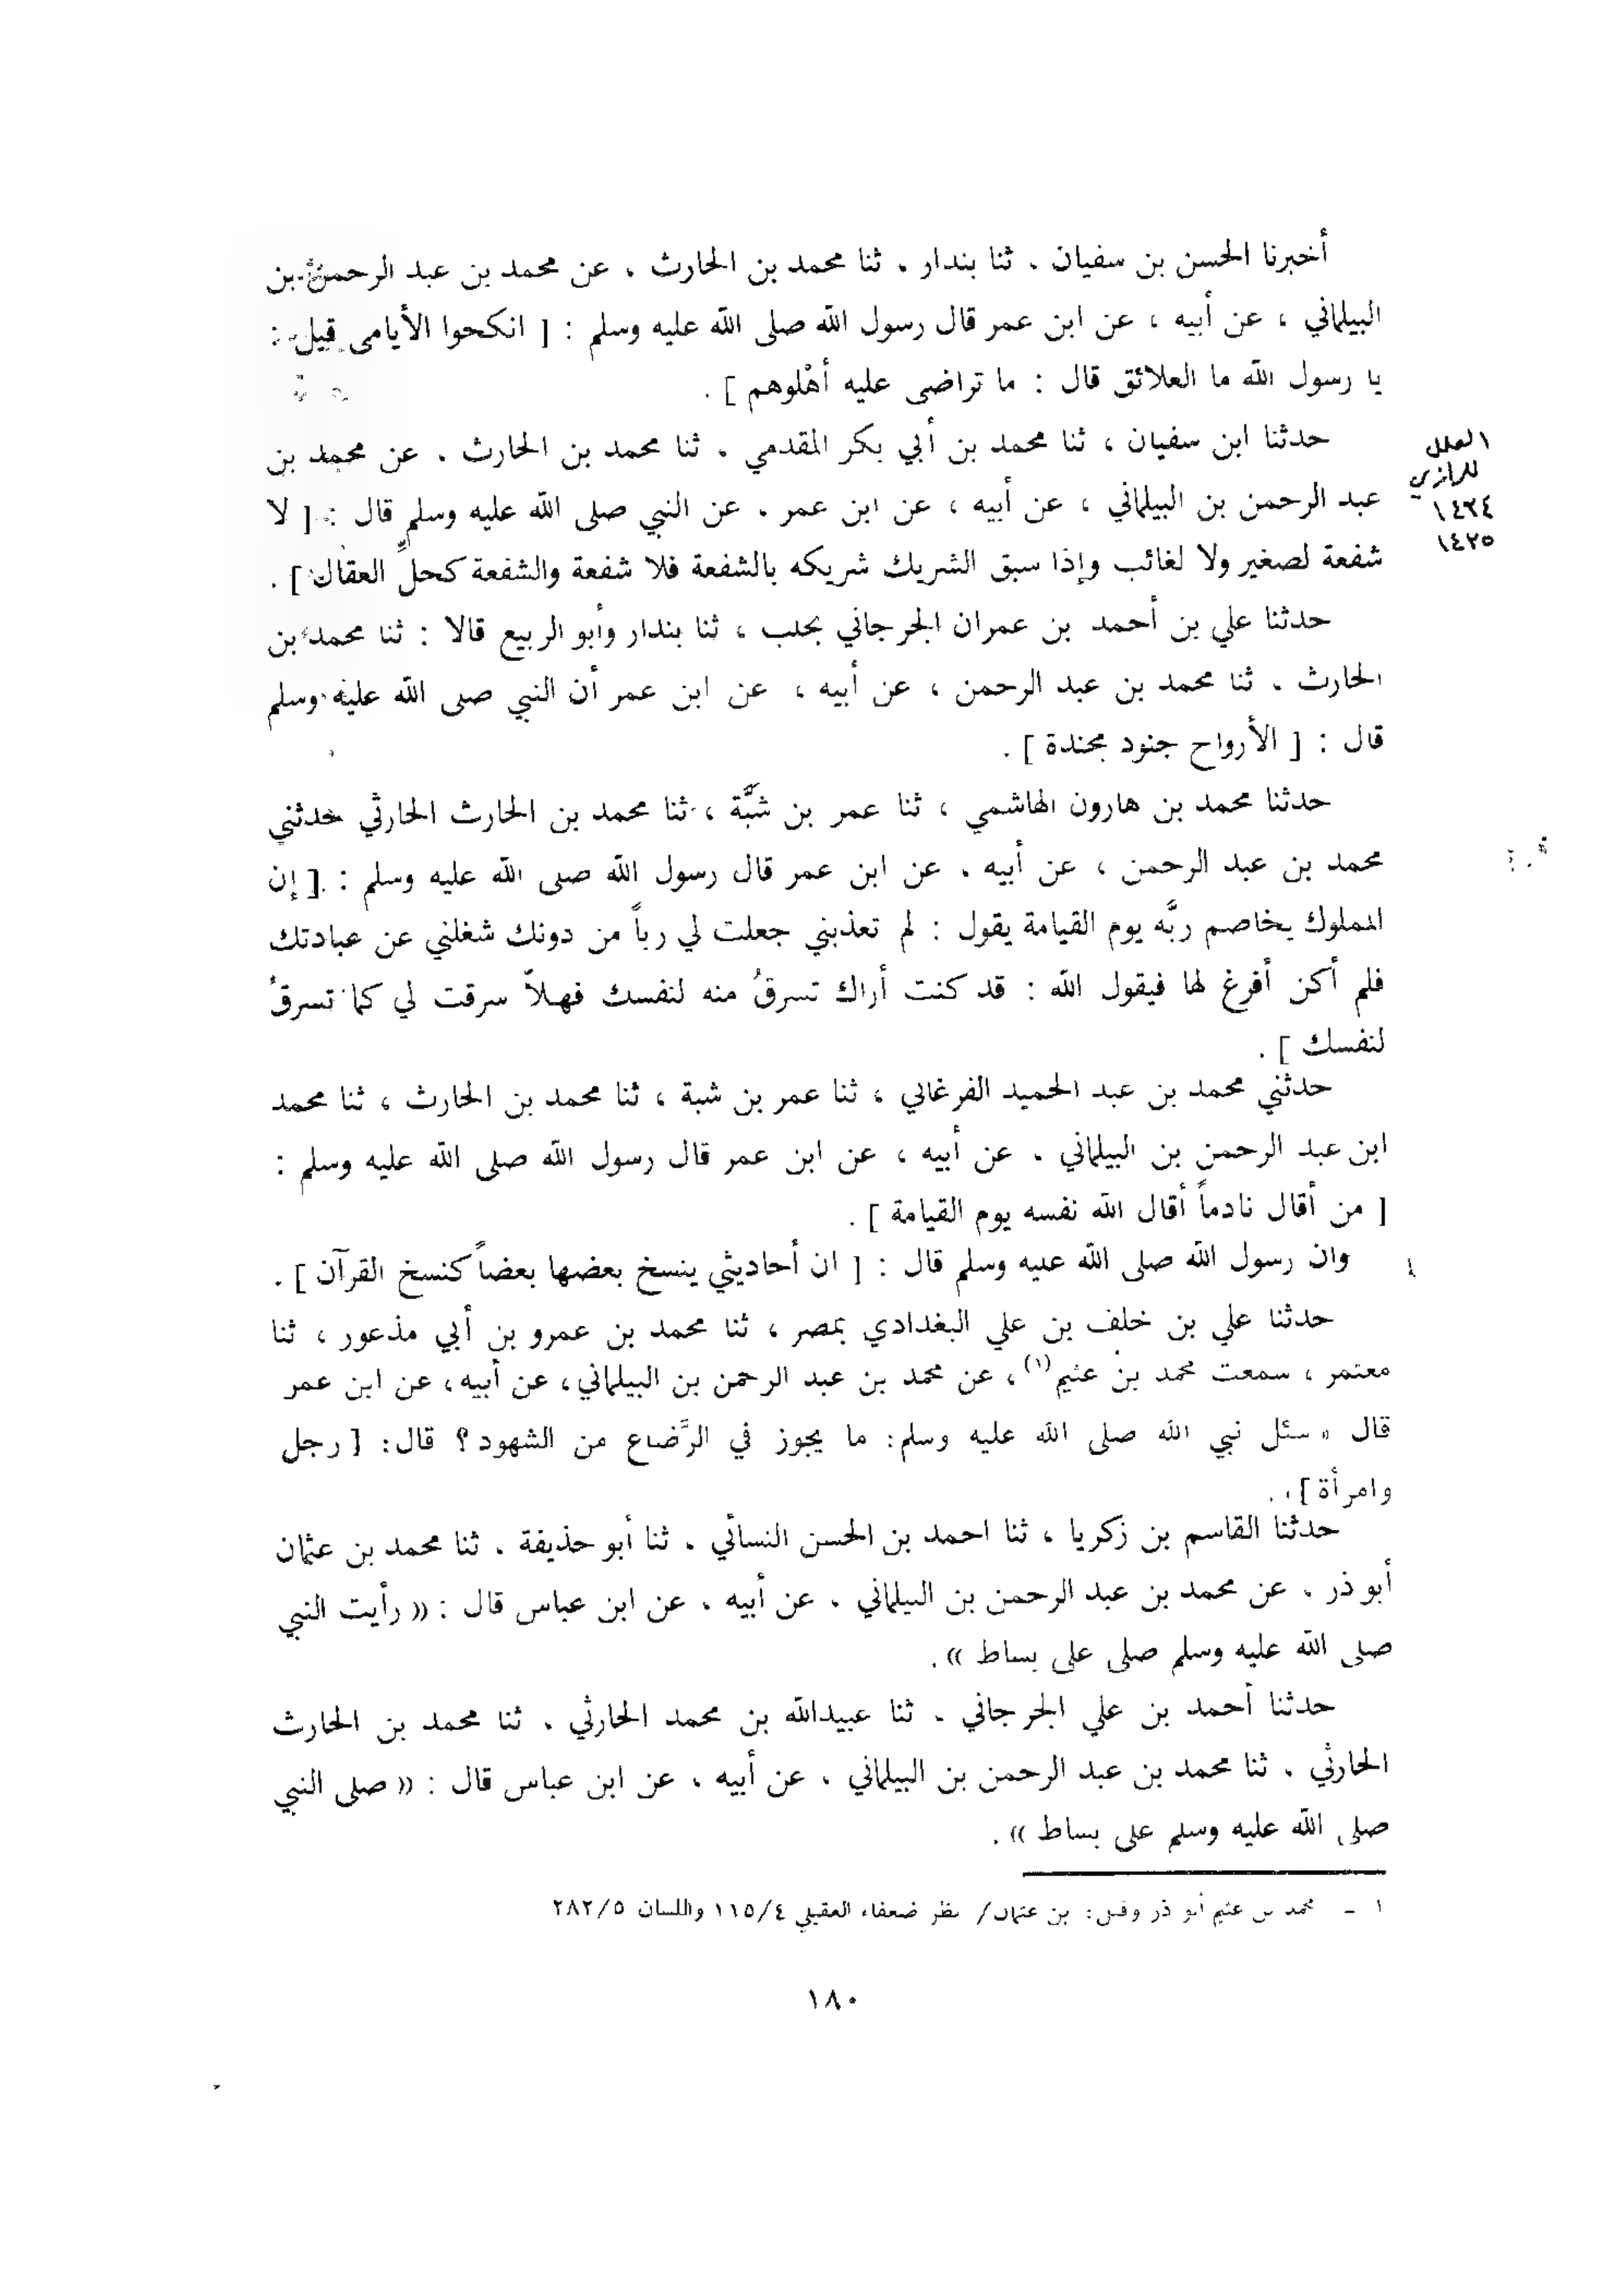 أخبرنا الحسن بن سفيان . ثنا بندار . ثنا محمد بن الحارث . عن محمد بن عبد الرحمن بن
البيلماني ، عن أبيه ، عن ابن عمر قال رسول الله صلى الله عليه وسلم : [ انكحوا الأيامى قيل :
يا رسول الله ما العلائق قال : ما تراضى عليه أهْلوهم ] .
حدثنا ابن سفيان ، ثنا محمد بن أبي بكر المقدمي . ثنا محمد بن الحارث . عن محمد بن
عبد الرحمن بن البيلماني ، عن أبيه ، عن ابن عمر . عن النبي صلى الله عليه وسلم قال : [ لا
شفعة لصغير ولا لغائب وإذا سبق الشريك شريكه بالشفعة فلا شفعة والشفعة كحلِّ العقال ] .
العلل
للرازي
١٤٣٤
١٤٣٥
حدثنا علي بن أحمد بن عمران الجرجاني بحلب ، ثنا بندار وأبو الربيع قالا : ثنا محمد بن
الحارث . ثنا محمد بن عبد الرحمن ، عن أبيه ، عن ابن عمر أن النبي صلى الله عليه وسلم
قال : [ الأرواح جنود مجندة ] .
حدثنا محمد بن هارون الهاشمي ، ثنا عمر بن شبَّة ، ثنا محمد بن الحارث الحارثي حدثني
محمد بن عبد الرحمن ، عن أبيه . عن ابن عمر قال رسول الله صلى الله عليه وسلم : [ إن
المملوك يخاصم ربَّه يوم القيامة يقول : لم تعذبني جعلت لي رباً من دونك شغلني عن عبادتك
فلم أكن أفرغ لها فيقول الله : قد كنت أراك تسرقُ منه لنفسك فهلاّ سرقت لي كما تسرقُ
لنفسك ] .
حدثني محمد بن عبد الحميد الفرغاني ، ثنا عمر بن شبة ، ثنا محمد بن الحارث ، ثنا محمد
ابن عبد الرحمن بن البيلماني . عن أبيه ، عن ابن عمر قال رسول الله صلى الله عليه وسلم :
[ من أقال نادماً أقال الله نفسه يوم القيامة ] .
وان رسول الله صلى الله عليه وسلم قال : [ ان أحاديثي ينسخ بعضها بعضاً كنسخ القرآن ] .
حدثنا علي بن خلف بن علي البغدادي بمصر ، ثنا محمد بن عمرو بن أبي مذعور ، ثنا
معتمر ، سمعت محمد بن عثيم(١) ، عن محمد بن عبد الرحمن بن البيلماني، عن أبيه، عن ابن عمر
قال « سئل نبي الله صلى الله عليه وسلم: ما يجوز في الرَّضاع من الشهود؟ قال: [ رجل
وامرأة ] .
حدثنا القاسم بن زكريا ، ثنا احمد بن الحسن النسائي . ثنا أبو حذيفة . ثنا محمد بن عثمان
أبو ذر . عن محمد بن عبد الرحمن بن البيلماني . عن أبيه . عن ابن عباس قال : « رأيت النبي
صلى الله عليه وسلم صلى على بساط » .
حدثنا أحمد بن علي الجرجاني . ثنا عبيدالله بن محمد الحارثي . ثنا محمد بن الحارث
الحارثي . ثنا محمد بن عبد الرحمن بن البيلماني . عن أبيه . عن ابن عباس قال : « صلى النبي
صلى الله عليه وسلم على بساط » .
١ - محمد بن عثيم أبو ذر وقيل: بن عثمان/ ينظر ضعفاء العقيلي ١١٥/٤ واللسان ٢٨٢/٥
١٨٠